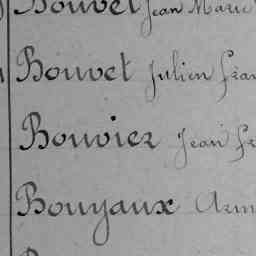 Bouvet Jean Marie
Bouvet Julien Fran
Bouvier Jean Fr
Bouyaux Arm